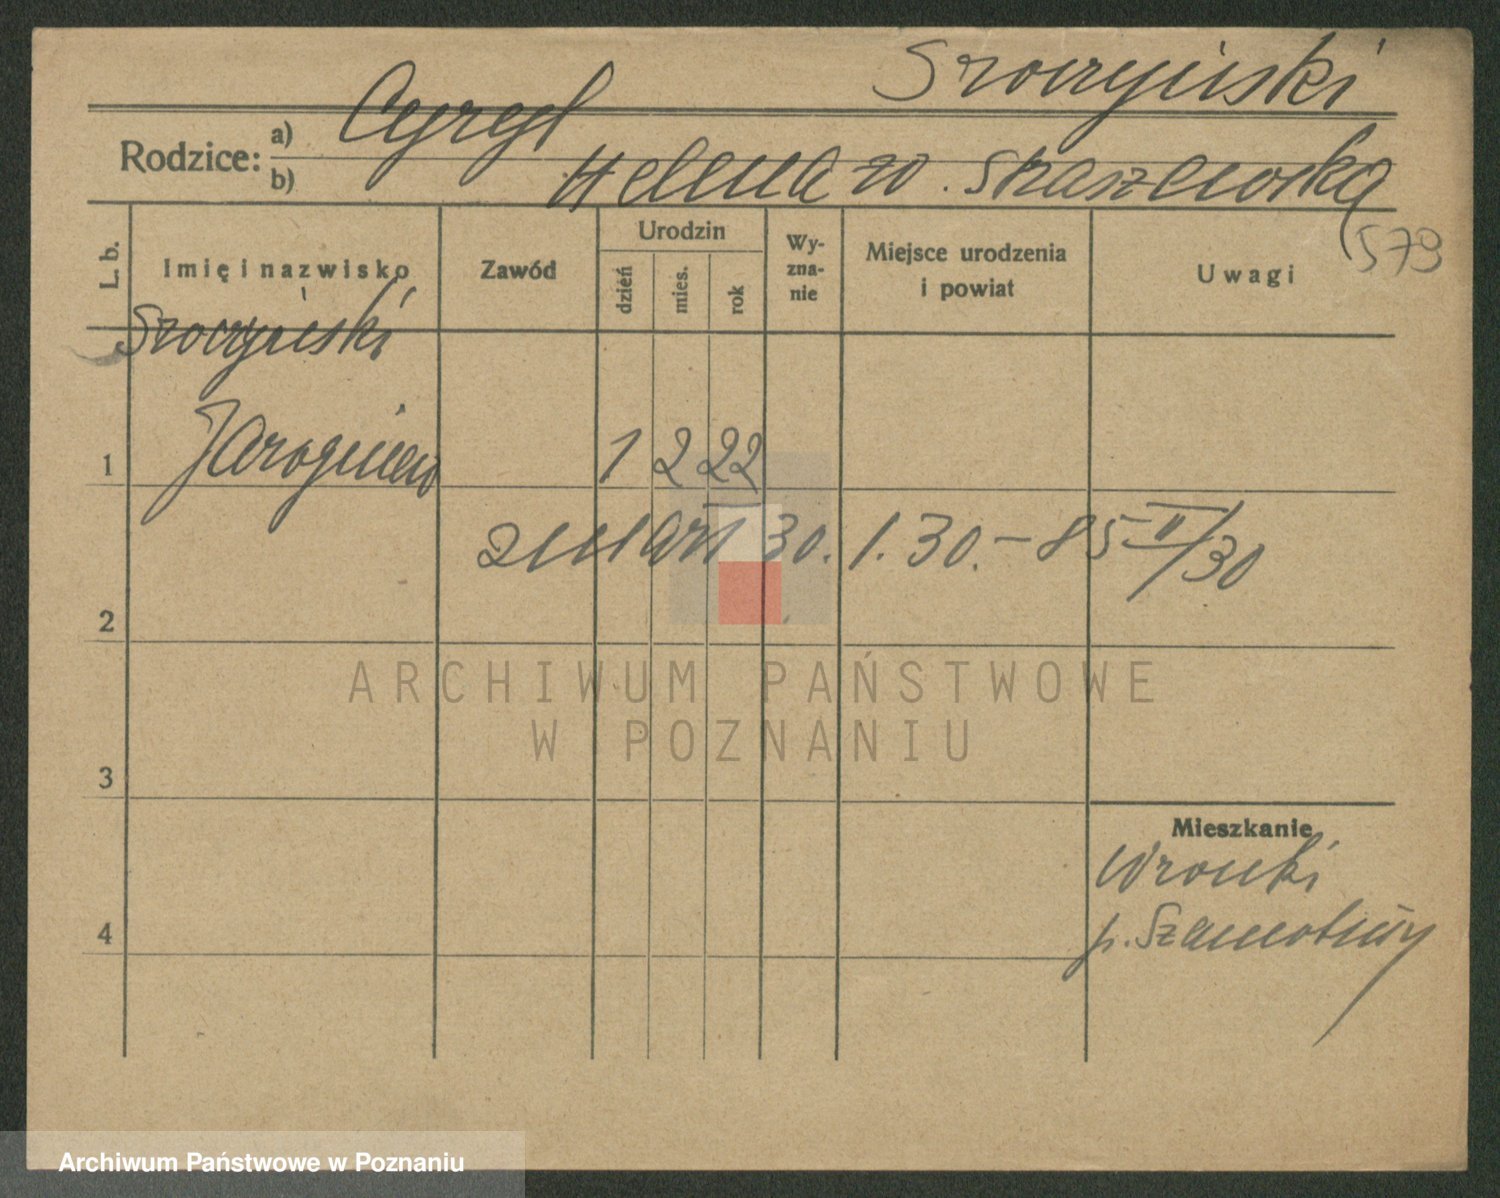 Rodzice:
a) Cyryl
b) Helena zd. Straszewska
579
L. b.
Imię i nazwisko
Zawód
Urodzin
dzień
mies.
rok
Wy-
zna-
nie
Miejsce urodzenia
i powiat
Uwagi
1
Jarogniew
1 2 22
zmarł 30. 1. 30. – 85 II/30
2
3
4
Mieszkanie
Wronki
p. Szamotuły
ARCHIWUM PAŃSTWOWE
W POZNANIU
Archiwum Państwowe w Poznaniu